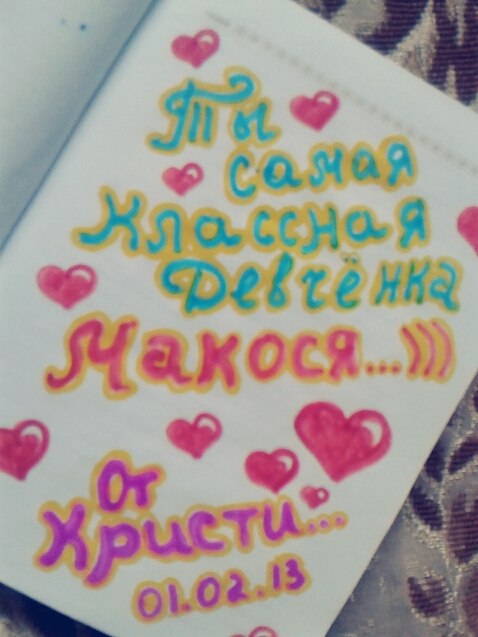 Ты
самая
Классная
Девчёнка
Макося...)))
От
Христи...
01.02.13